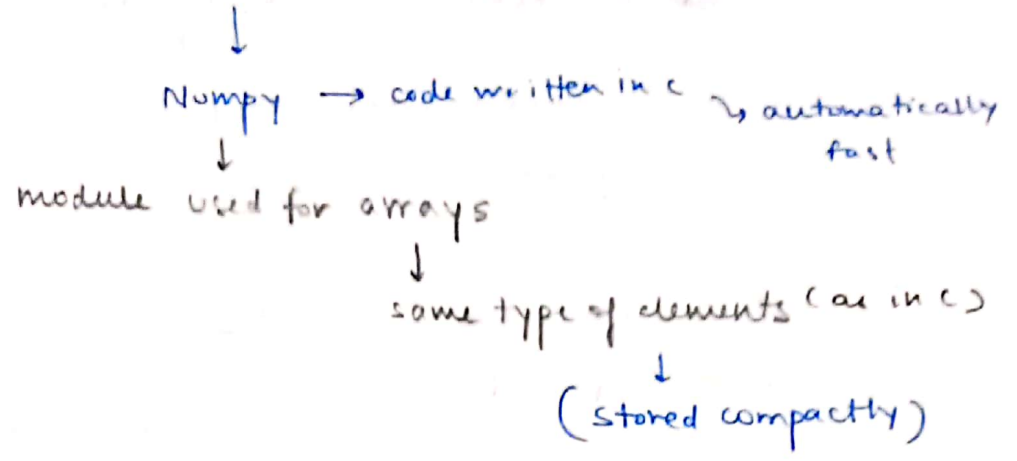 ↓
Numpy → code written in c ↳ automatically
fast
↓
module used for arrays
↓
same type of elements (as in c)
↓
(stored compactly)